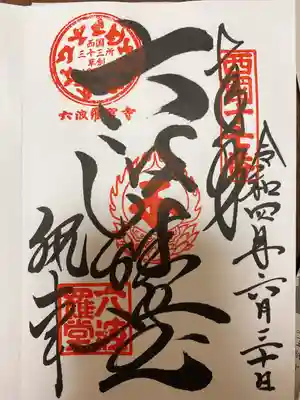 奉拝
西国十七番
令和四年六月三十日
六波羅堂
西国
三十三所
草創
六波羅蜜寺
執事
六波羅堂